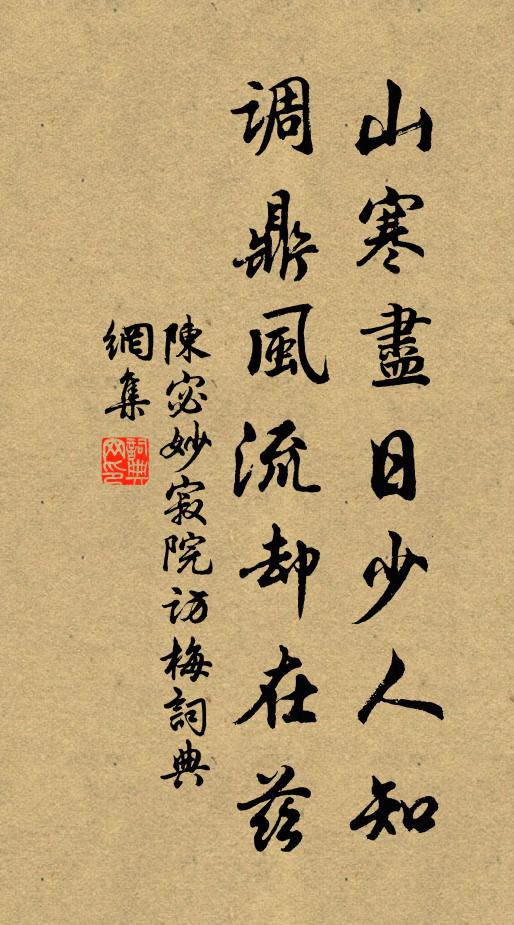 山寒盡日少人知
调鼎風流却在茲
陳宓妙寂院访梅詞典
網集
詞典網印